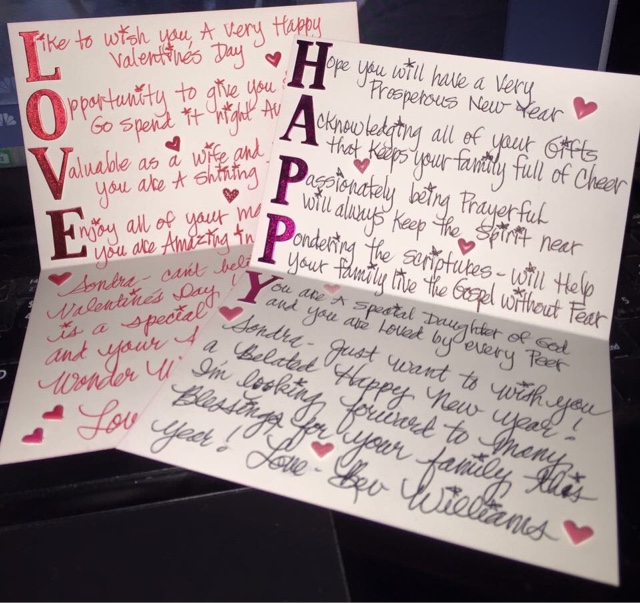 Like to wish you A Very Happy
Valentine's Day
Opportunity to give you
Go spend it right
Valuable as a wife and
you are A Shining
Enjoy all of your
you are Amazing
Sondra - can't
Valentine's Day
is a special
and your
Wonder
Hope you will have a Very
Prosperous New Year
Acknowledging all of your Gifts
that keeps your family full of Cheer
Passionately being Prayerful
will always keep the Spirit near
Pondering the scriptures - will Help
your family live the Gospel without Fear
You are A Special Daughter of God
and you are Loved by every Peer
Sondra - Just want to wish you
a Belated Happy New Year!
I'm looking forward to many
Blessings for your family this
year! Love - Bev Williams